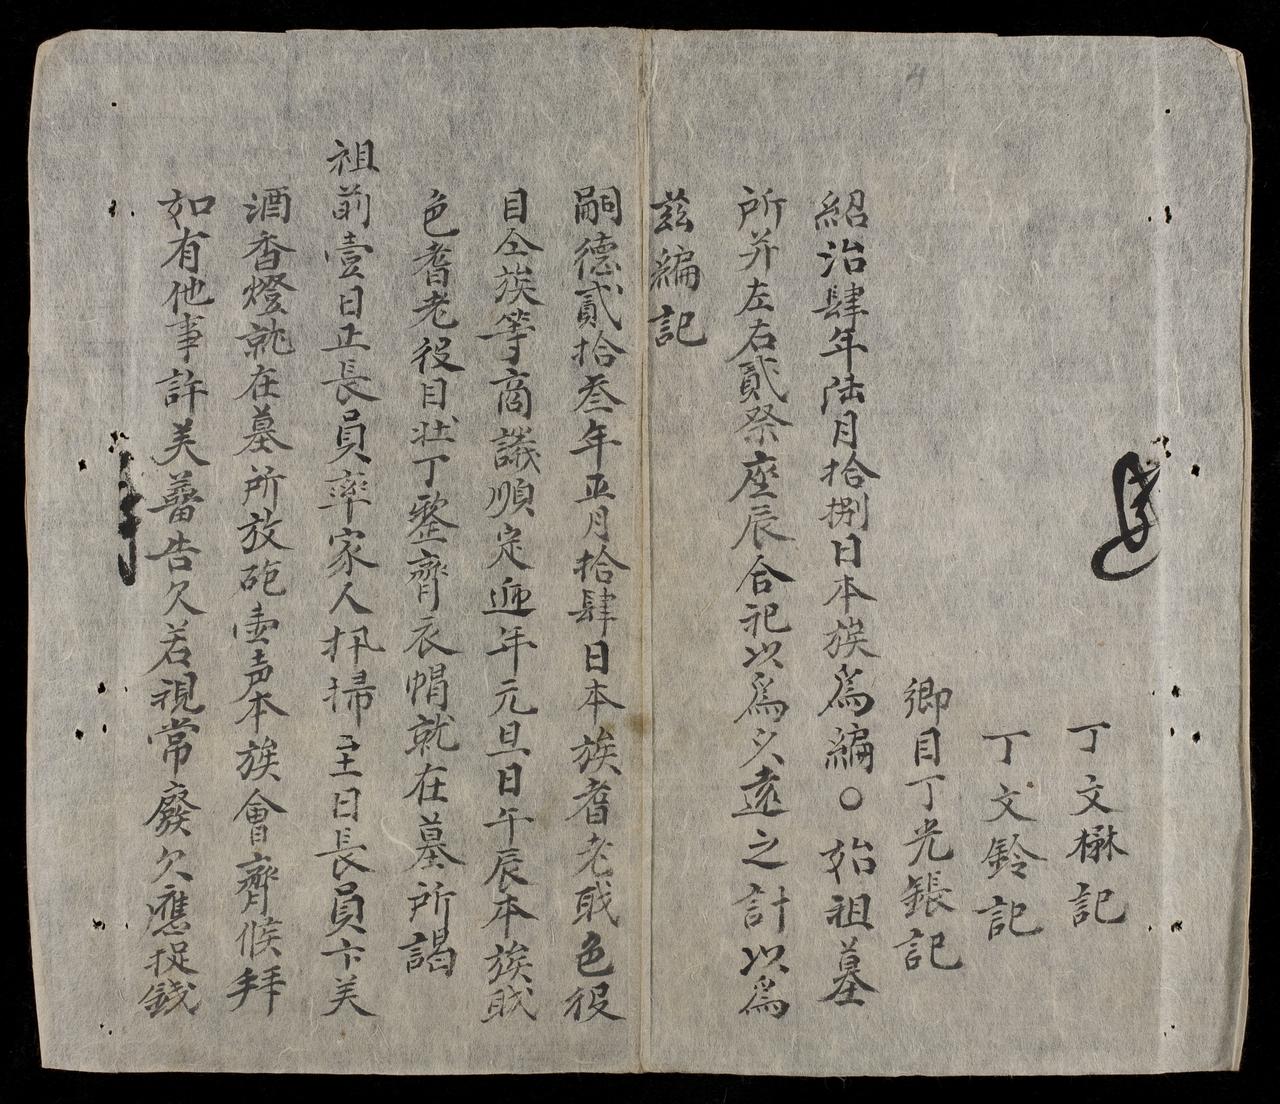 丁文楙記
丁文鈴記
鄉目丁光鋹記
紹治肆年陸月拾捌日本族爲編○始祖墓
所并左右貳祭座辰合祀以爲久遠之計以爲
茲編記
嗣德貳拾叁年正月拾肆日本族耆老職色役
目仝族等商議順定遞年元旦日午辰本族職
色耆老役目壯丁整齊衣帽就在墓所謁
祖前壹日正長員率家人扫掃主日長員卞芙
酒香燈就在墓所放砲壹声本族會齊候拜
如有他事許芙蕾告欠若視常廢欠應捉錢